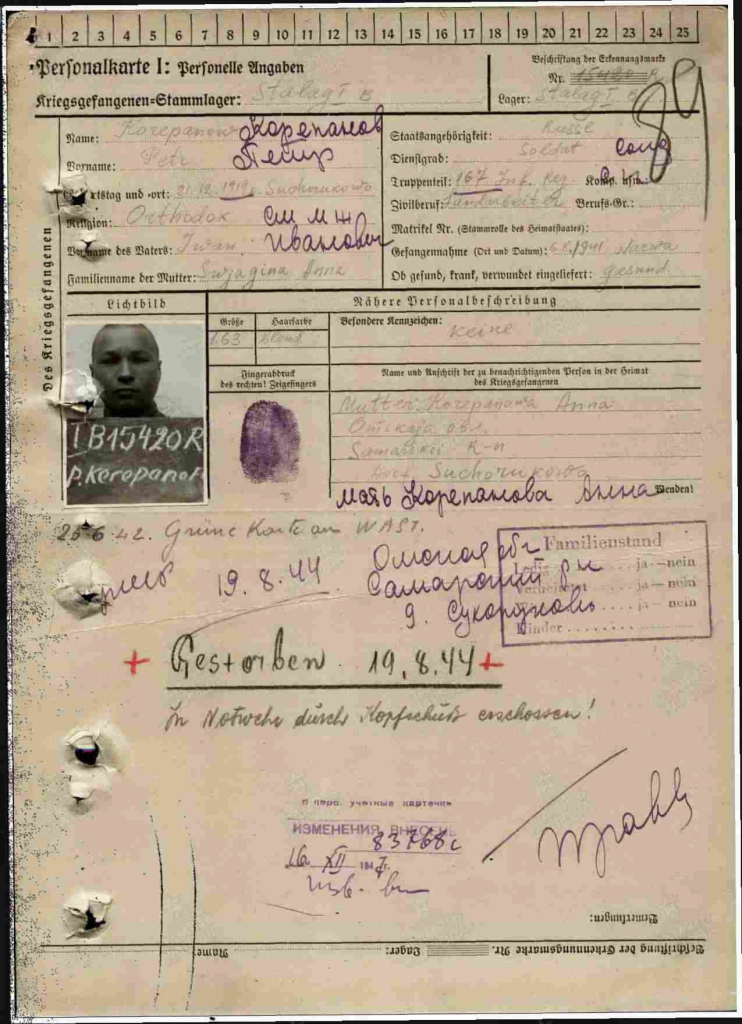 1 2 3 4 5 6 7 8 9 10 11 12 13 14 15 16 17 18 19 20 21 22 23 24 25
Personalkarte I: Personelle Angaben
Kriegsgefangenen-Stammlager: Stalag I B
Beschriftung der Erkennungsmarke
Nr. 15420 R
Lager: Stalag I B
84
Des Kriegsgefangenen
Name: Korepanow Корепанов
Vorname: Petr Петр
Geburtstag und -ort: 21.12.1919 Suchorukowo
Religion: Orthodox
Vorname des Vaters: Iwan Иванович
Familienname der Mutter: Swjagina Anna
Staatsangehörigkeit: Russe
Dienstgrad: Soldat солд
Truppenteil: 167 Inf. Reg. Komp. usw.:
Zivilberuf: Landarbeiter Berufs-Gr.:
Matrikel Nr. (Stammrolle des Heimatstaates):
Gefangennahme (Ort und Datum): 1941 Narwa
Ob gesund, krank, verwundet eingeliefert: gesund
Lichtbild
Nähere Personalbeschreibung
Größe
Haarfarbe
Besondere Kennzeichen: keine
1.63
blond
Fingerabdruck
des rechten! Zeigefingers
Name und Anschrift der zu benachrichtigenden Person in der Heimat
des Kriegsgefangenen
I B 15420 R
P. Kerepanof
Mutter: Korepanowa Anna
Omskaja obl.
Samarskii R-n
Dorf Suchorukowo
мать Корепанова Анна
Wenden!
25.6.42. Grüne Karte an WASt.
19.8.44
Омская обл
Самарский р-н
д. Сухоруково
Familienstand
Ledig ja — nein
Verheiratet ja — nein
ja — nein
Kinder
+ Gestorben 19.8.44 +
In Notwehr durch Kopfschuß erschossen!
В перс. учетные карточки
ИЗМЕНЕНИЯ ВНЕСЕНЫ
83768с
16 XII 1947г.
Bemerkungen:
Beschriftung der Erkennungsmarke Nr. Lager: Name: